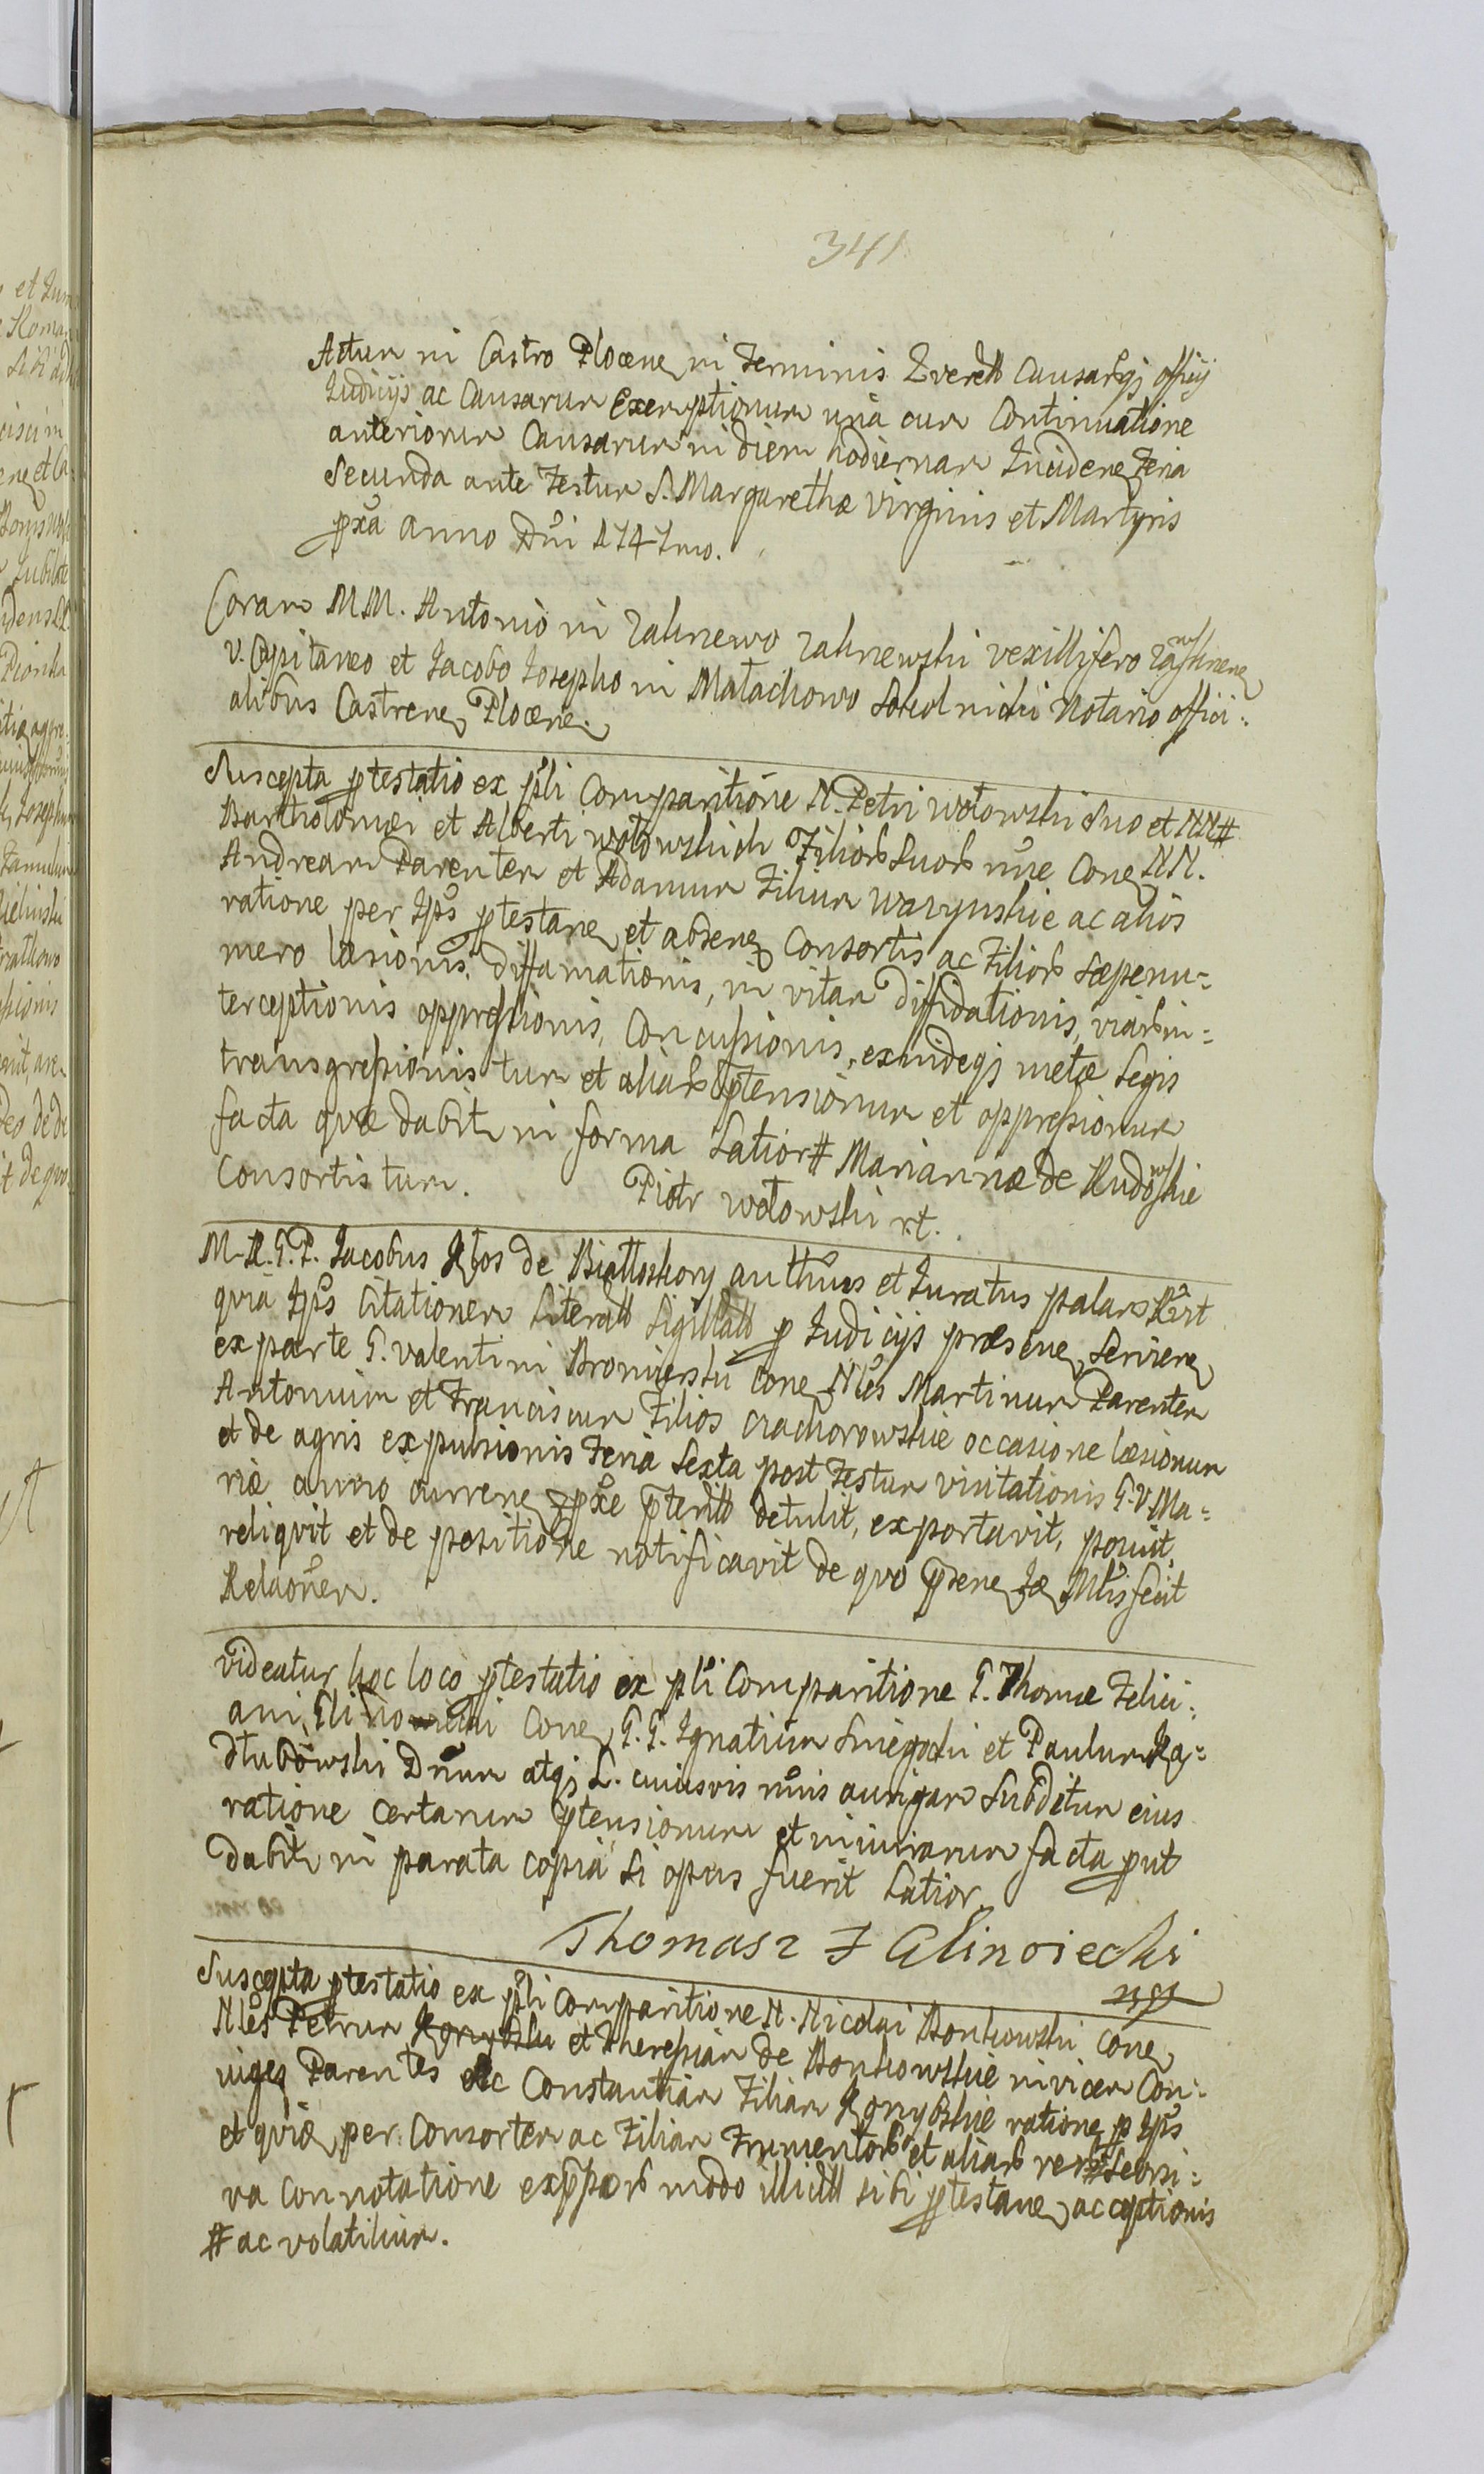 341
Actum in Castro Plocen in Terminis Querell Causarqȝ officij
Judicijs ac Causarum Exemptionum unà cum Continuatione
anteriorum Causarum in diem hodiernam Inciden Feria
Secunda ante Festum S. Margarethæ Virginis et Martyris
pxã Anno Dñi 1747mo.
Coram MM. Antonio in Zalinewo
V. Capitaneo et Jacobo Josepho in Małachowo Sokolnicki Notario offici:
alibus Castren Plocen.
Suscepta ptestatio ex pli Comparitione N. Petri Wołowski Suo et NN #
Bartholomæi et Alberti Wołowskich Filiorƀ Suorƀ nñe Con NN.
Andream Parentem et Adamum Filium ac alios
ratione per Ipš ptestan et absen Consortis ac Filiorƀ Sæpenu=
mero læsionis, diffamationis, in vitam diffidationis, viarƀ in=
terceptionis oppressionis, Concussionis, exindeqȝ metæ Legis
transgressionis tum et aliarƀ ptensionum et oppressionum
facta quæ dabit in forma Latior # Mariannæ de
Consortis tum. Piotr Wołowski rt.
M.R.G.P. Jacobus Kłos de Białłoskory authũs et Juratus palam Rĕt
quia Ipš Citationem Literall Sigillall p Judicijs præsen Servien
ex parte G. Valentini Bromierski Con Nlĕs Martinum Parentem
Antonium et Franciscum Filios occasione læsionum
et de agris expulsionis Feria Sexta post Festum Visitationis G. V. Ma=
riæ anno curren pxe pteritt detulit, exportavit, posuit,
reliquit et de positione notificavit de quo psen Iæ Mlis fecit
Relaoñem.
Videatur hoc loco ptestatio ex pli Comparitione G. Thomæ Felici:
ani Con G.G. Ignatium Sniegocki et Paulum Ka=
dłubowski Dñum atqȝ L. cuiusvis nñis aurigam Subditum eius
ratione certarum ptensionum et iniuriarum facta put
dabit in parata copia si opus fuerit Latior
Thomasz F Glinoiecki
mp
Suscepta ptestatio ex pli Comparitione N. Nicolai Bonkowski Con
Nlĕs Petrum et Theressiam de Bonkowskie invicem Con:
iuges Parentes ac Constantiam Filiam ratione p Ipš
et quia per Consortem ac Filiam Frumentorƀ et aliarƀ rer #
va Connotatione expssarƀ modo illicitt sibi ptestan acceptionis
# ac volatilium.